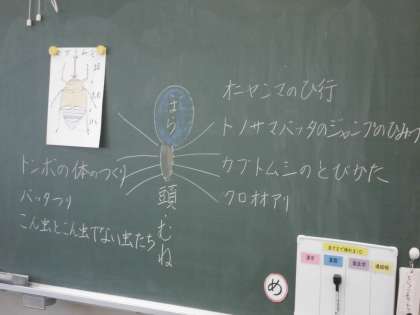 オニヤンマのひ行
トノサマバッタのジャンプのひみつ
カブトムシのとびかた
クロオオアリ
はら
頭・むね
トンボの体のつくり
バッタつり
こん虫とこん虫でない虫たち
め